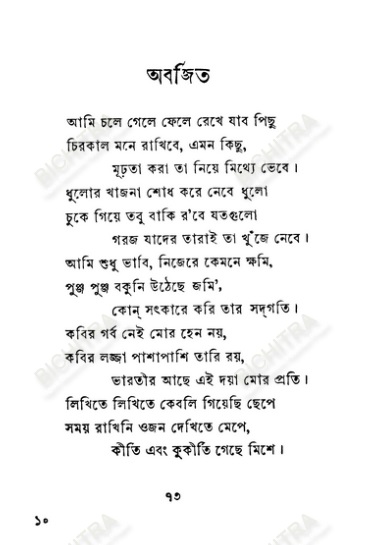 অবর্জিত
আমি চলে গেলে ফেলে রেখে যাব পিছু
চিরকাল মনে রাখিবে, এমন কিছু,
মূঢ়তা করা তা নিয়ে মিথ্যে ভেবে।
ধুলোর খাজনা শোধ করে নেবে ধুলো
চুকে গিয়ে তবু বাকি র'বে যতগুলো
গরজ যাদের তারাই তা খুঁজে নেবে।
আমি শুধু ভাবি, নিজেরে কেমনে ক্ষমি,
পুঞ্জ পুঞ্জ বকুনি উঠেছে জমি',
কোন্ সৎকারে করি তার সদ্‌গতি।
কবির গর্ব নেই মোর হেন নয়,
কবির লজ্জা পাশাপাশি তারি রয়,
ভারতীর আছে এই দয়া মোর প্রতি।
লিখিতে লিখিতে কেবলি গিয়েছি ছেপে
সময় রাখিনি ওজন দেখিতে মেপে,
কীর্তি এবং কুকীর্তি গেছে মিশে।
৭৩
১০
BICHITRA